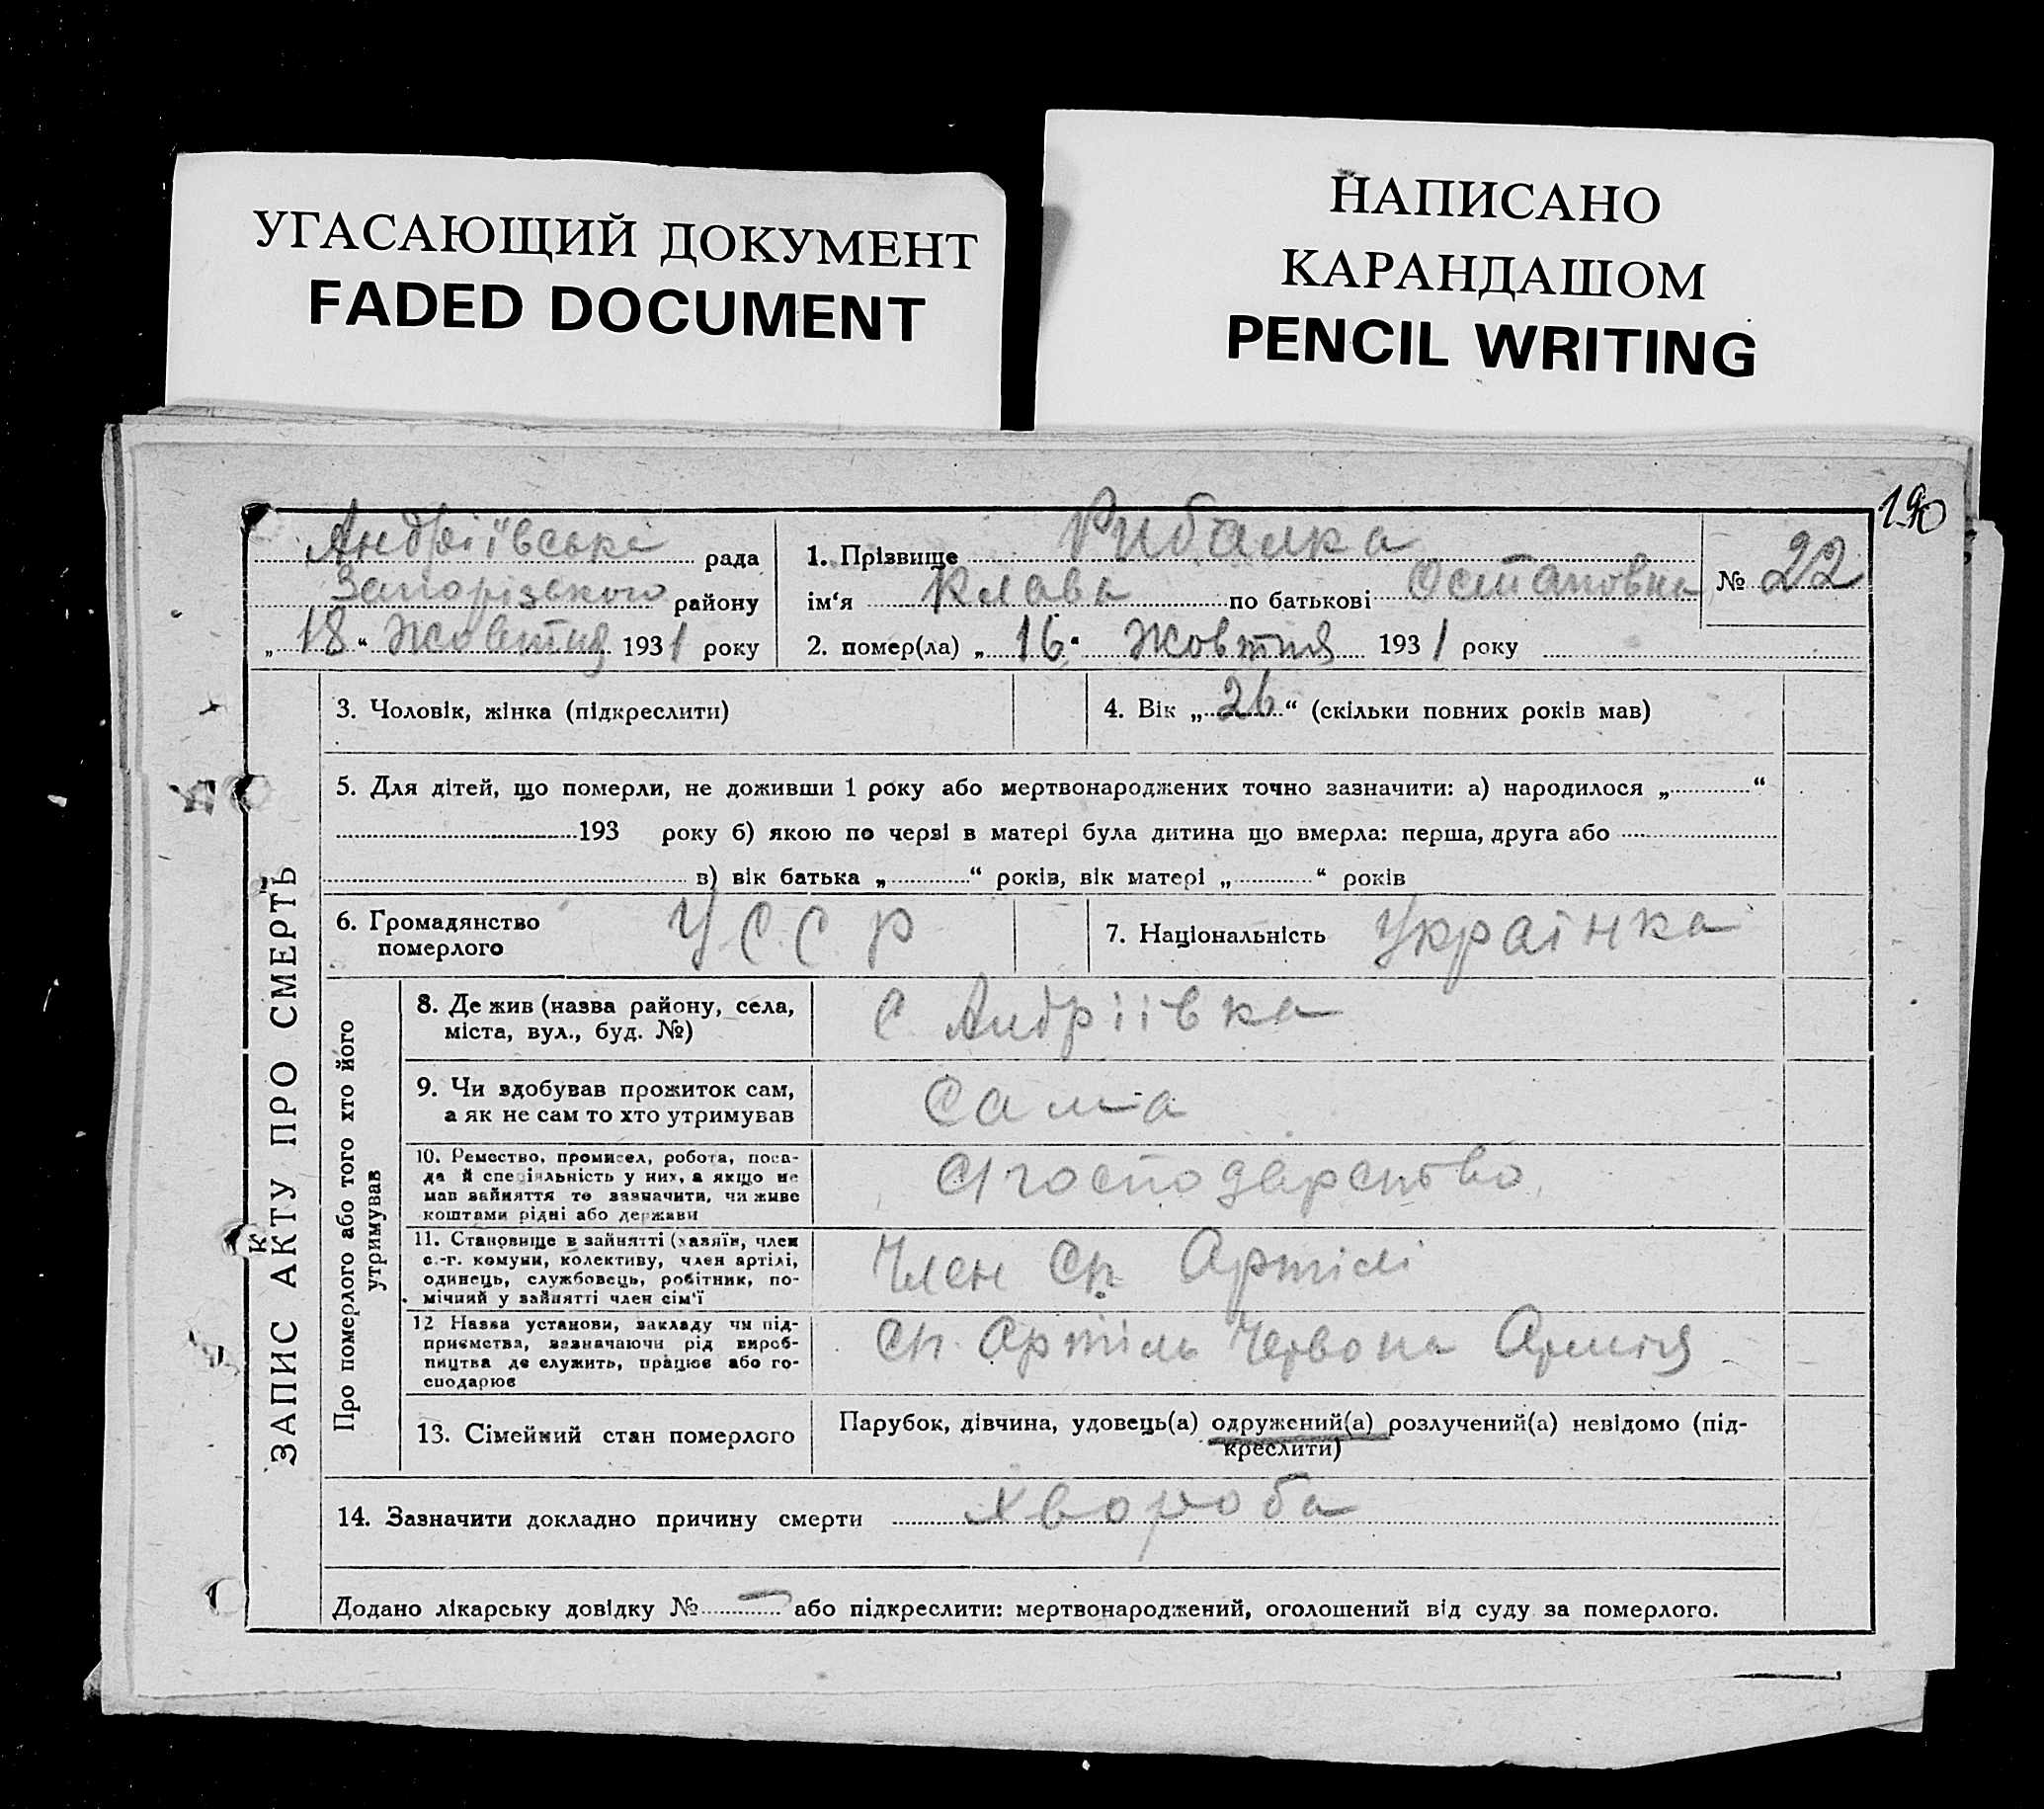 УГАСАЮЩИЙ ДОКУМЕНТ
FADED DOCUMENT
НАПИСАНО
КАРАНДАШОМ
PENCIL WRITING
190
Андріївська рада
Запорізького району
„18“ Жовтня 1931 року
1. Прізвище Рибалка
ім‘я Клава по батькові Остаповна
№ 22
2. помер(ла) „16“ Жовтня 1931 року
ЗАПИС АКТУ ПРО СМЕРТЬ
3. Чоловік, жінка (підкреслити)
4. Вік „26“ (скільки повних років мав)
5. Для дітей, що померли, не доживши 1 року або мертвонароджених точно зазначити: а) народилося „ “
193 року б) якою по черзі в матері була дитина що вмерла: перша, друга або
в) вік батька „ “ років, вік матері „ “ років
6. Громадянство
померлого
УССР
7. Національність Українка
Про померлого або того хто його
утримував
8. Де жив (назва району, села,
міста, вул., буд. №)
С Андріівка
9. Чи здобував прожиток сам,
а як не сам то хто утримував
Сама
10. Ремество, промисел, робота, поса-
да й спеціяльність у них, а якщо не
мав зайняття то зазначити, чи живе
коштами рідні або держави
С/господарство
11. Становище в зайнятті (хазяїн, член
с.-г. комуни, колективу, член артілі,
одинець, службовець, робітник, по-
мічний у зайнятті член сім‘ї
Член Сп Артілі
12 Назва установи, закладу чи під-
приємства, зазначаючи рід вироб-
ництва де служить, працює або го-
сподарює
Сп. Артіль Червона Армія
13. Сімейний стан померлого
Парубок, дівчина, удовець(а) одружений(а) розлучений(а) невідомо (під-
креслити)
14. Зазначити докладно причину смерти хвороба
Додано лікарську довідку № — або підкреслити: мертвонароджений, оголошений від суду за померлого.